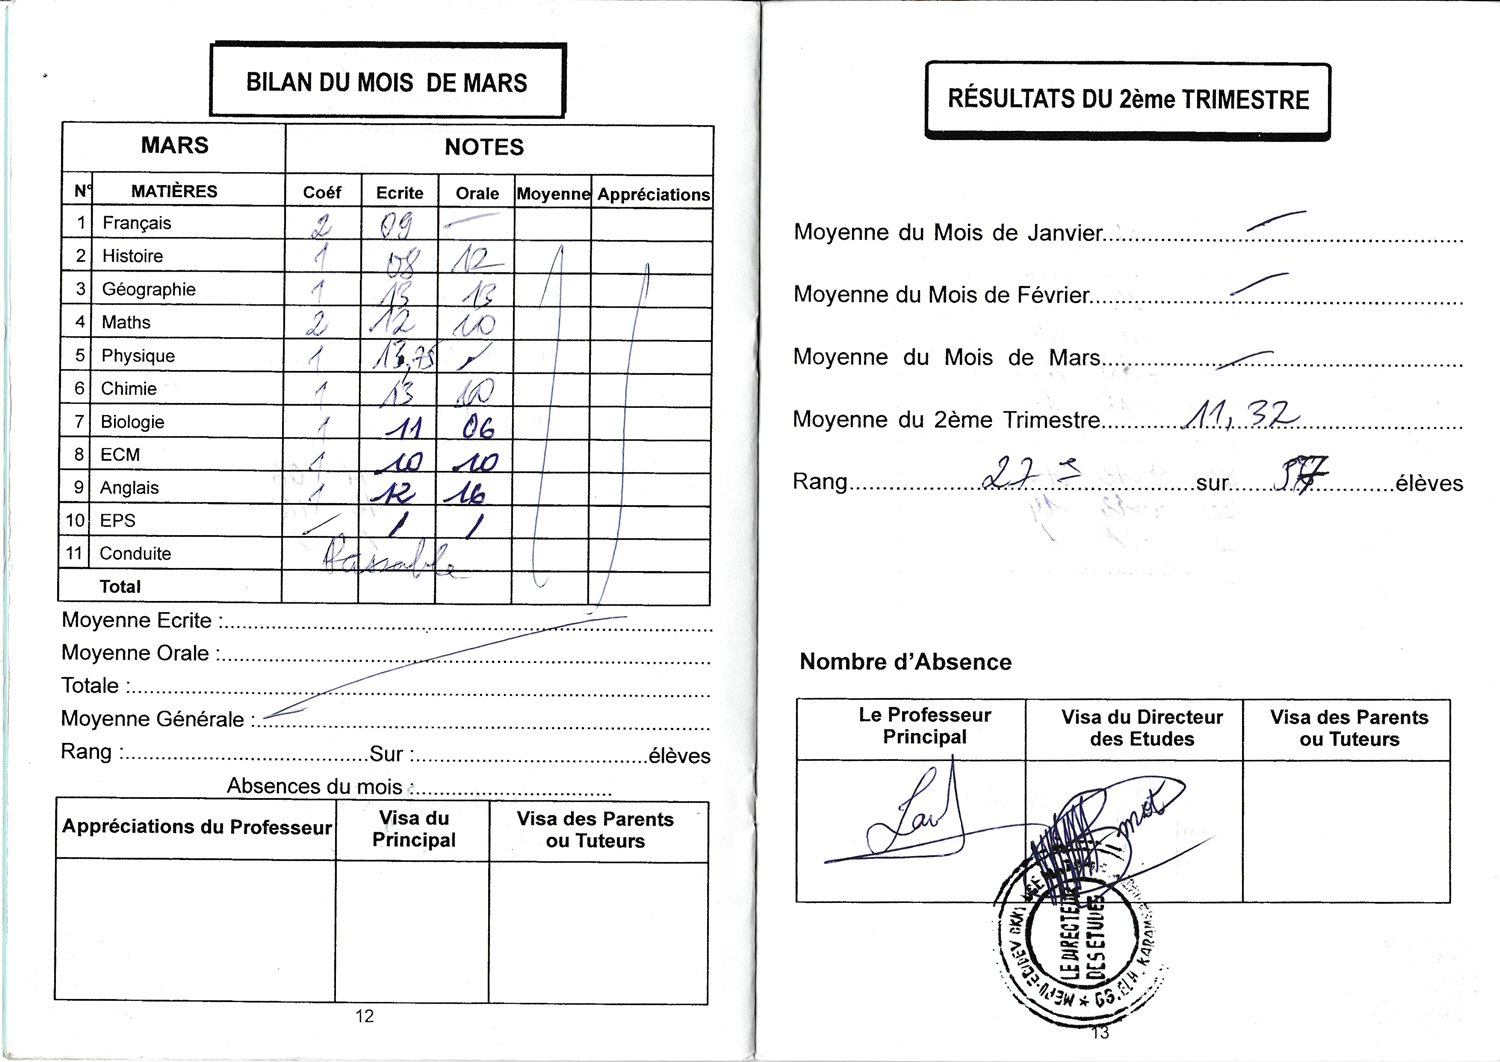 BILAN DU MOIS DE MARS
MARS NOTES
N° MATIÈRES Coéf Ecrite Orale Moyenne Appréciations
1 Français 2 09 —
2 Histoire 1 08 12
3 Géographie 1 13 13
4 Maths 2 12 10
5 Physique 1 13,75
6 Chimie 1 13 10
7 Biologie 1 11 06
8 ECM 1 10 10
9 Anglais 1 12 16
10 EPS / / /
11 Conduite Passable
Total
Moyenne Ecrite :
Moyenne Orale :
Totale :
Moyenne Générale :
Rang : Sur : élèves
Absences du mois :
Appréciations du Professeur Visa du Principal Visa des Parents ou Tuteurs
12
RÉSULTATS DU 2ème TRIMESTRE
Moyenne du Mois de Janvier
Moyenne du Mois de Février
Moyenne du Mois de Mars
Moyenne du 2ème Trimestre 11,32
Rang 27 e sur 57 élèves
Nombre d'Absence
Le Professeur Principal Visa du Directeur des Etudes Visa des Parents ou Tuteurs
LE DIRECTEUR
DES ETUDES
13